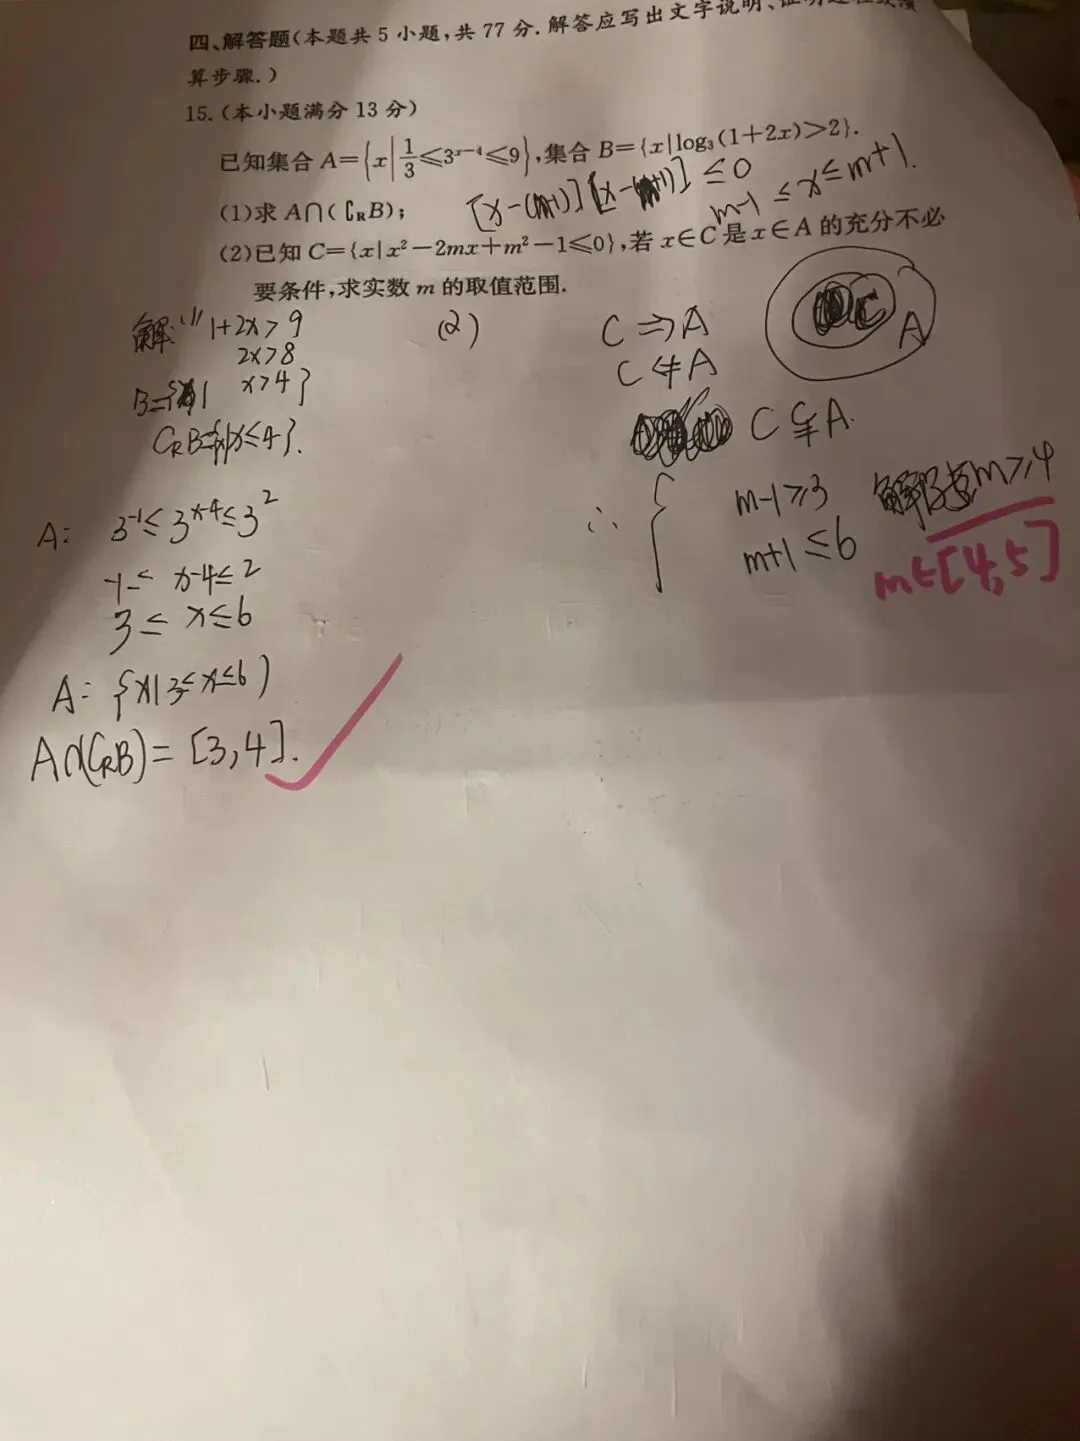 四、解答题(本题共5小题,共77分.解答应写出文字说明、证明过程或演
算步骤.)
15.(本小题满分13分)
已知集合A={x|1/3≤3^{x-4}≤9},集合B={x|log₃(1+2x)>2}.
[x-(m-1)][x-(m+1)]≤0
m-1≤x≤m+1.
(1)求A∩(∁ᴿB);
(2)已知C={x|x²-2mx+m²-1≤0},若x∈C是x∈A的充分不必
要条件,求实数m的取值范围.
解:(1) 1+2x>9
2x>8
B={x| x>4}
CᴿB={x|x≤4}.
A: 3^{-1}≤3^{x-4}≤3^2
-1≤x-4≤2
3≤x≤6
A={x|3≤x≤6)
A∩(CᴿB)=[3,4].
(2)
C⇒A
C⇍A
C⫋A.
C
A
∴{ m-1≥3
m+1≤6
解得m≥4
m∈[4,5]